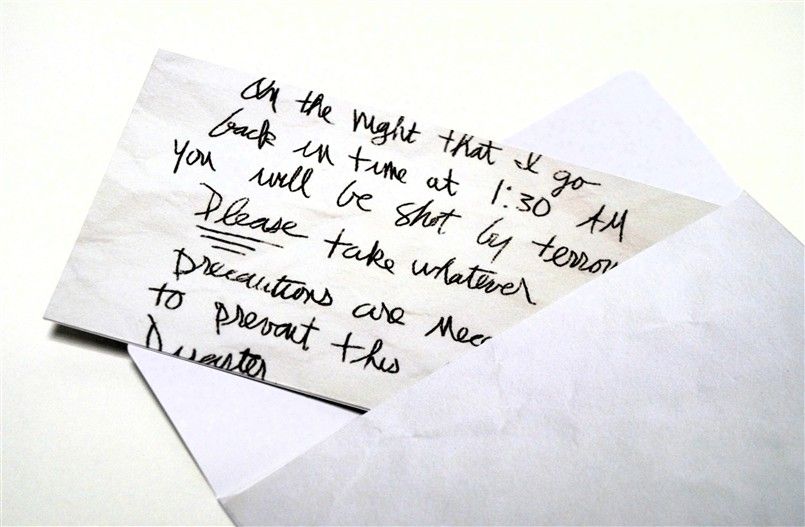 On the night that I go
back in time at 1:30 AM
You will be shot by terror
Please take whatever
Precautions are nec
to prevent this
Disaster